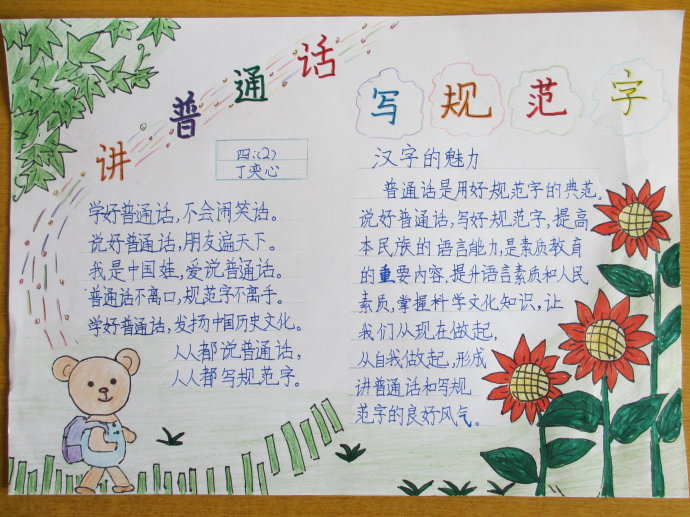 讲普通话
写规范字
四(2)
丁奕心
学好普通话,不会闹笑话。
说好普通话,朋友遍天下。
我是中国娃,爱说普通话。
普通话不离口,规范字不离手。
学好普通话,发扬中国历史文化。
人人都说普通话,
人人都写规范字。
汉字的魅力
普通话是用好规范字的典范。
说好普通话,写好规范字,提高
本民族的语言能力,是素质教育
的重要内容.提升语言素质和人民
素质,掌握科学文化知识,让
我们从现在做起,
从自我做起,形成
讲普通话和写规
范字的良好风气。